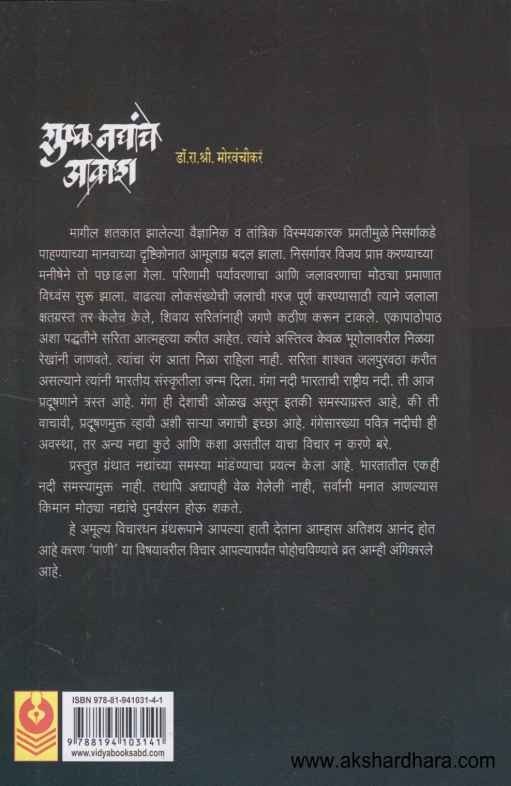 शुष्क नद्यांचे
आक्रोश
डॉ.रा.श्री. मोरवंचीकर
मागील शतकात झालेल्या वैज्ञानिक व तांत्रिक विस्मयकारक प्रगतीमुळे निसर्गाकडे
पाहण्याच्या मानवाच्या दृष्टिकोनात आमूलाग्र बदल झाला. निसर्गावर विजय प्राप्त करण्याच्या
मनीषेने तो पछाडला गेला. परिणामी पर्यावरणाचा आणि जलावरणाचा मोठ्या प्रमाणात
विध्वंस सुरू झाला. वाढत्या लोकसंख्येची जलाची गरज पूर्ण करण्यासाठी त्याने जलाला
क्षतग्रस्त तर केलेच केले, शिवाय सरितांनाही जगणे कठीण करून टाकले. एकापाठोपाठ
अशा पद्धतीने सरिता आत्महत्या करीत आहेत. त्यांचे अस्तित्व केवळ भूगोलावरील निळ्या
रेखांनी जाणवते. त्यांचा रंग आता निळा राहिला नाही. सरिता शाश्वत जलपुरवठा करीत
असल्याने त्यांनी भारतीय संस्कृतीला जन्म दिला. गंगा नदी भारताची राष्ट्रीय नदी. ती आज
प्रदूषणाने त्रस्त आहे. गंगा ही देशाची ओळख असून इतकी समस्याग्रस्त आहे, की ती
वाचावी, प्रदूषणमुक्त व्हावी अशी साऱ्या जगाची इच्छा आहे. गंगेसारख्या पवित्र नदीची ही
अवस्था, तर अन्य नद्या कुठे आणि कशा असतील याचा विचार न करणे बरे.
प्रस्तुत ग्रंथात नद्यांच्या समस्या मांडण्याचा प्रयत्न केला आहे. भारतातील एकही
नदी समस्यामुक्त नाही. तथापि अद्यापही वेळ गेलेली नाही, सर्वांनी मनात आणल्यास
किमान मोठ्या नद्यांचे पुनर्वसन होऊ शकते.
हे अमूल्य विचारधन ग्रंथरूपाने आपल्या हाती देताना आम्हास अतिशय आनंद होत
आहे कारण 'पाणी' या विषयावरील विचार आपल्यापर्यंत पोहोचविण्याचे व्रत आम्ही अंगिकारले
आहे.
ISBN 978-81-941031-4-1
9 788194 103141
www.vidyabooksabd.com
www.akshardhara.com